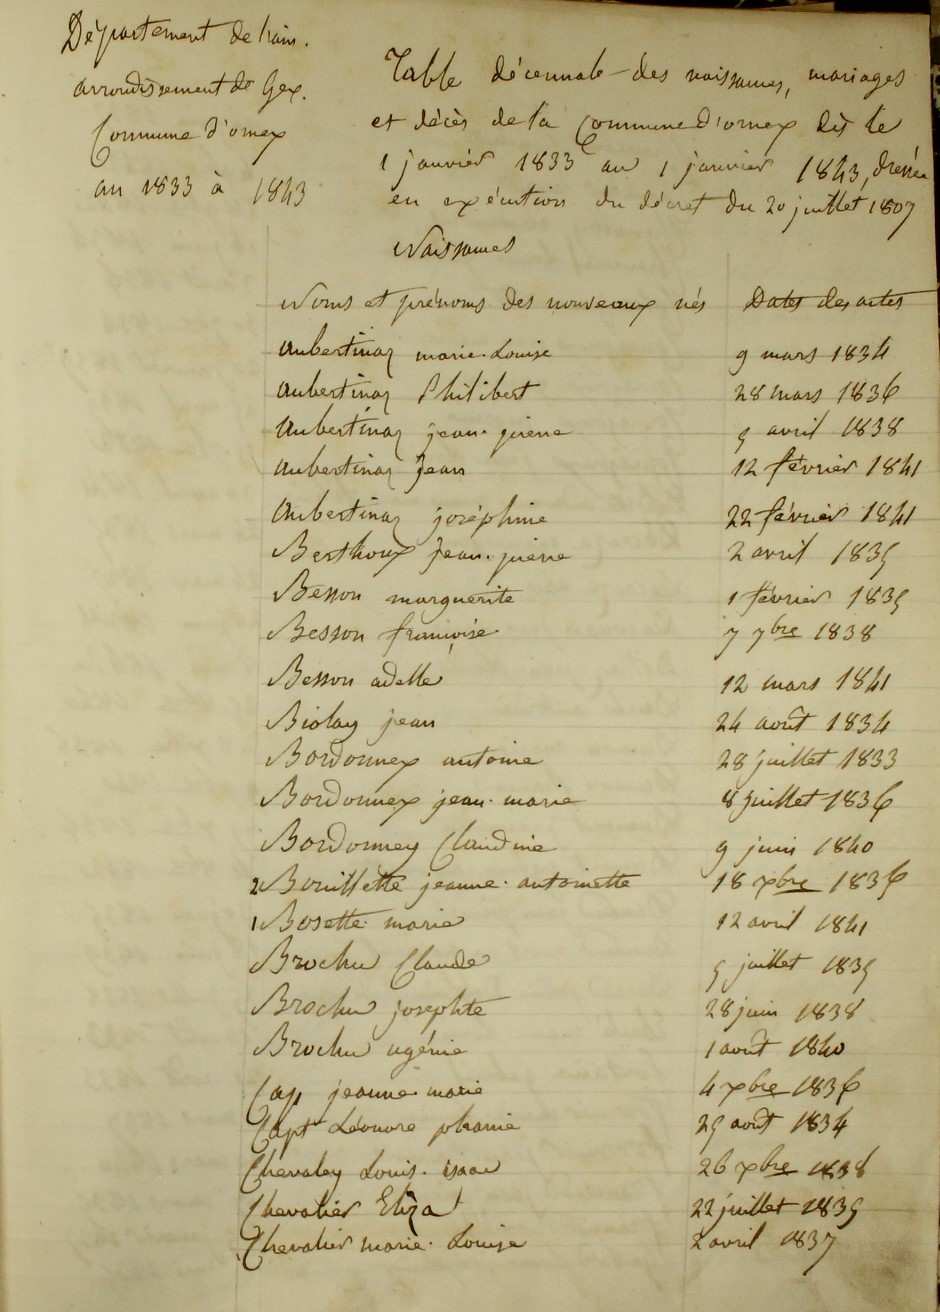 Département de l'ain.
arrondissement de Gex.
Commune d'ornex
an 1833 à 1843
Table décennale des naissances, mariages
et décès de la Commune d'ornex dès le
1 janvier 1833 au 1 janvier 1843, dressée
en exécution du décret du 20 juillet 1807
Naissances
Noms et prénoms des nouveaux nés Dates des actes
Aubertinaz marie-Louise 9 mars 1834
Aubertinaz Philibert 28 mars 1836
Aubertinaz jean-pierre 5 avril 1838
Aubertinaz Jean 12 février 1841
Aubertinaz joséphine 22 février 1841
Berthoux Jean-pierre 2 avril 1835
Besson marguerite 1 février 1835
Besson françoise 7 7bre 1838
Besson adelle 12 mars 1841
Biolay jean 24 août 1834
Bordonnex antoine 28 juillet 1833
Bordonnex jean-marie 8 juillet 1836
Bordonney Claudine 9 juin 1840
2 Bouillette jeanne-antoinette 18 xbre 1836
1 Bosette marie 12 avril 1841
Brochu Claude 5 juillet 1835
Brochu josephte 28 juin 1838
Brochu ugénie 1 août 1840
Cap jeanne-marie 4 xbre 1836
Capt Léonore phanie 25 août 1834
Chevaley Louis-isaac 26 xbre 1838
Chevalier Eliza 22 juillet 1835
Chevalier marie-Louise 2 avril 1837